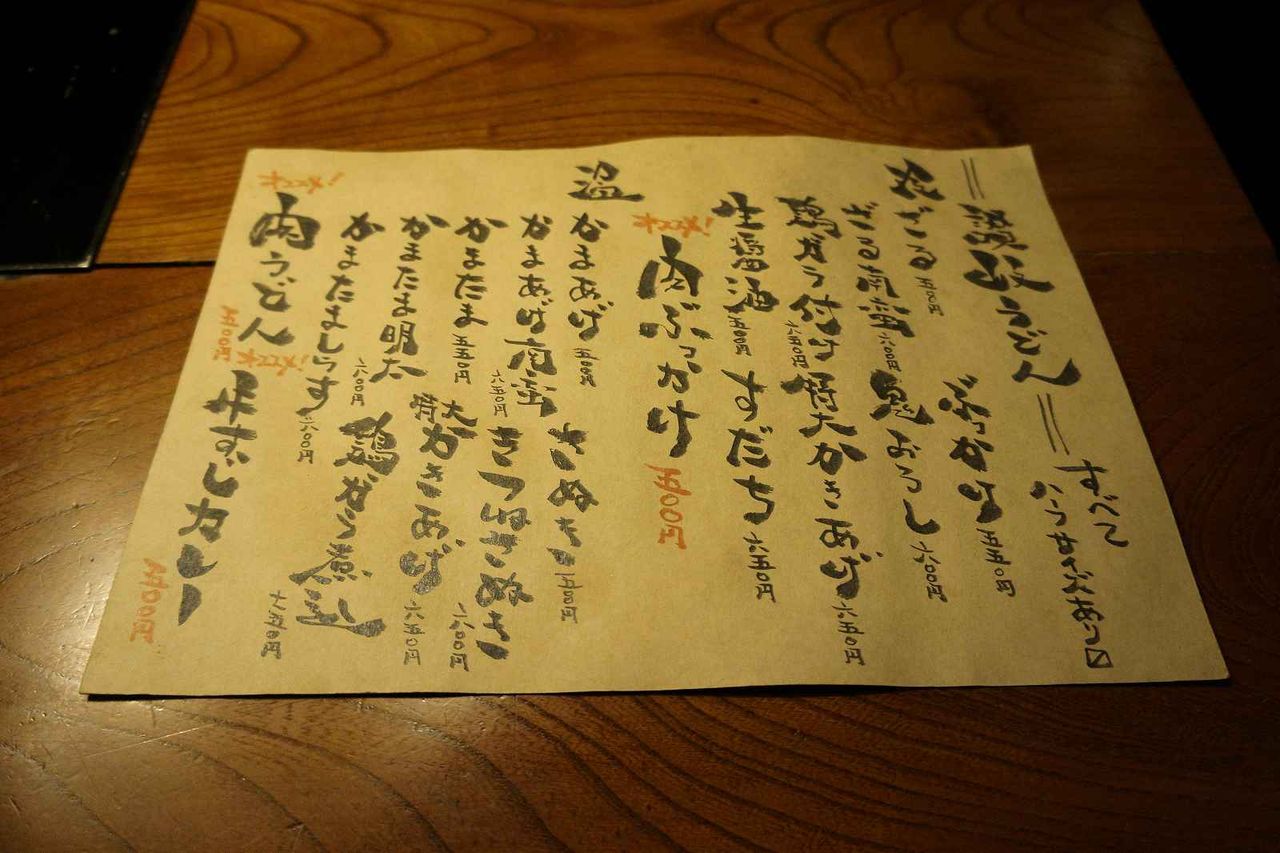 讃岐うどん
すべてハーフサイズあり〼
冷
ざる 五〇〇円
ぶっかけ 五五〇円
ざる南蛮 六〇〇円
鬼おろし 六〇〇円
鶏ガラ付け 六五〇円
特大かきあげ 六五〇円
生醤油 五〇〇円
すだち 六五〇円
オススメ!
肉ぶっかけ 五〇〇円
温
かまあげ 五〇〇円
きぬきつ 五〇〇円
かまあげ南蛮 六五〇円
きつねきぬき 六〇〇円
かまたま 五五〇円
特大かきあげ 六五〇円
かまたま明太 六〇〇円
鶏ガラ煮込 七五〇円
かまたましらす 六〇〇円
オススメ!
肉うどん 五〇〇円
オススメ!
牛すじカレー